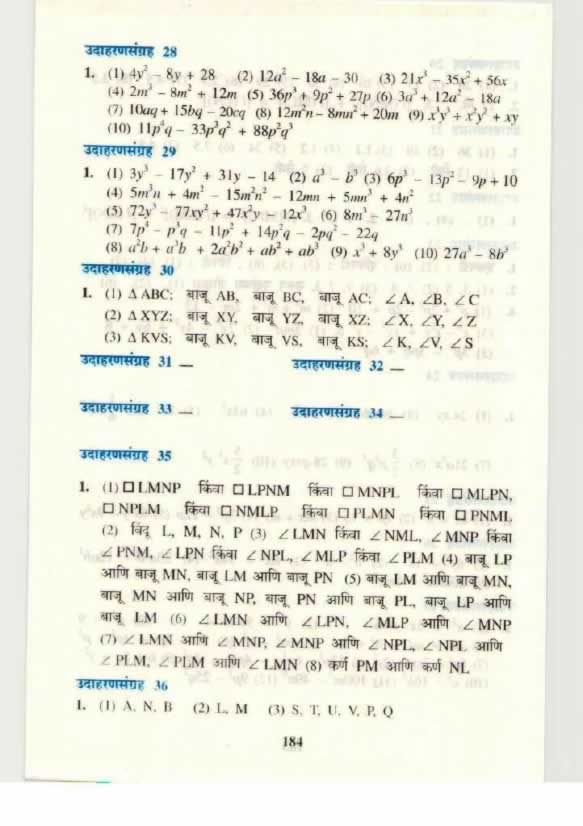 उदाहरणसंग्रह 28
1. (1) 4y² – 8y + 28 (2) 12a² – 18a – 30 (3) 21x³ – 35x² + 56x
(4) 2m³ – 8m² + 12m (5) 36p³ + 9p² + 27p (6) 3a³ + 12a² – 18a
(7) 10aq + 15bq – 20cq (8) 12m²n – 8mn² + 20m (9) x³y³ + x²y² + xy
(10) 11p⁴q – 33p³q² + 88p²q³
उदाहरणसंग्रह 29
1. (1) 3y³ – 17y² + 31y – 14 (2) a³ – b³ (3) 6p³ – 13p² – 9p + 10
(4) 5m³n + 4m² – 15m²n² – 12mn + 5mn³ + 4n²
(5) 72y³ – 77xy² + 47x²y – 12x³ (6) 8m³ – 27n³
(7) 7p⁴ – p³q – 11p² + 14p²q – 2pq² – 22q
(8) a²b + a³b + 2a²b² + ab² + ab³ (9) x³ + 8y³ (10) 27a³ – 8b³
उदाहरणसंग्रह 30
1. (1) Δ ABC; बाजू AB, बाजू BC, बाजू AC; ∠ A, ∠B, ∠ C
(2) Δ XYZ; बाजू XY, बाजू YZ, बाजू XZ; ∠X, ∠Y, ∠ Z
(3) Δ KVS; बाजू KV, बाजू VS, बाजू KS; ∠ K, ∠V, ∠ S
उदाहरणसंग्रह 31 — उदाहरणसंग्रह 32 —
उदाहरणसंग्रह 33 — उदाहरणसंग्रह 34 —
उदाहरणसंग्रह 35
1. (1) □ LMNP किंवा □ LPNM किंवा □ MNPL किंवा □ MLPN,
□ NPLM किंवा □ NMLP किंवा □ PLMN किंवा □ PNML
(2) बिंदू L, M, N, P (3) ∠ LMN किंवा ∠ NML, ∠ MNP किंवा
∠ PNM, ∠ LPN किंवा ∠ NPL, ∠ MLP किंवा ∠ PLM (4) बाजू LP
आणि बाजू MN, बाजू LM आणि बाजू PN (5) बाजू LM आणि बाजू MN,
बाजू MN आणि बाजू NP, बाजू PN आणि बाजू PL, बाजू LP आणि
बाजू LM (6) ∠ LMN आणि ∠ LPN, ∠ MLP आणि ∠ MNP
(7) ∠ LMN आणि ∠ MNP, ∠ MNP आणि ∠ NPL, ∠ NPL आणि
∠ PLM, ∠ PLM आणि ∠ LMN (8) कर्ण PM आणि कर्ण NL
उदाहरणसंग्रह 36
1. (1) A, N, B (2) L, M (3) S, T, U, V, P, Q
184